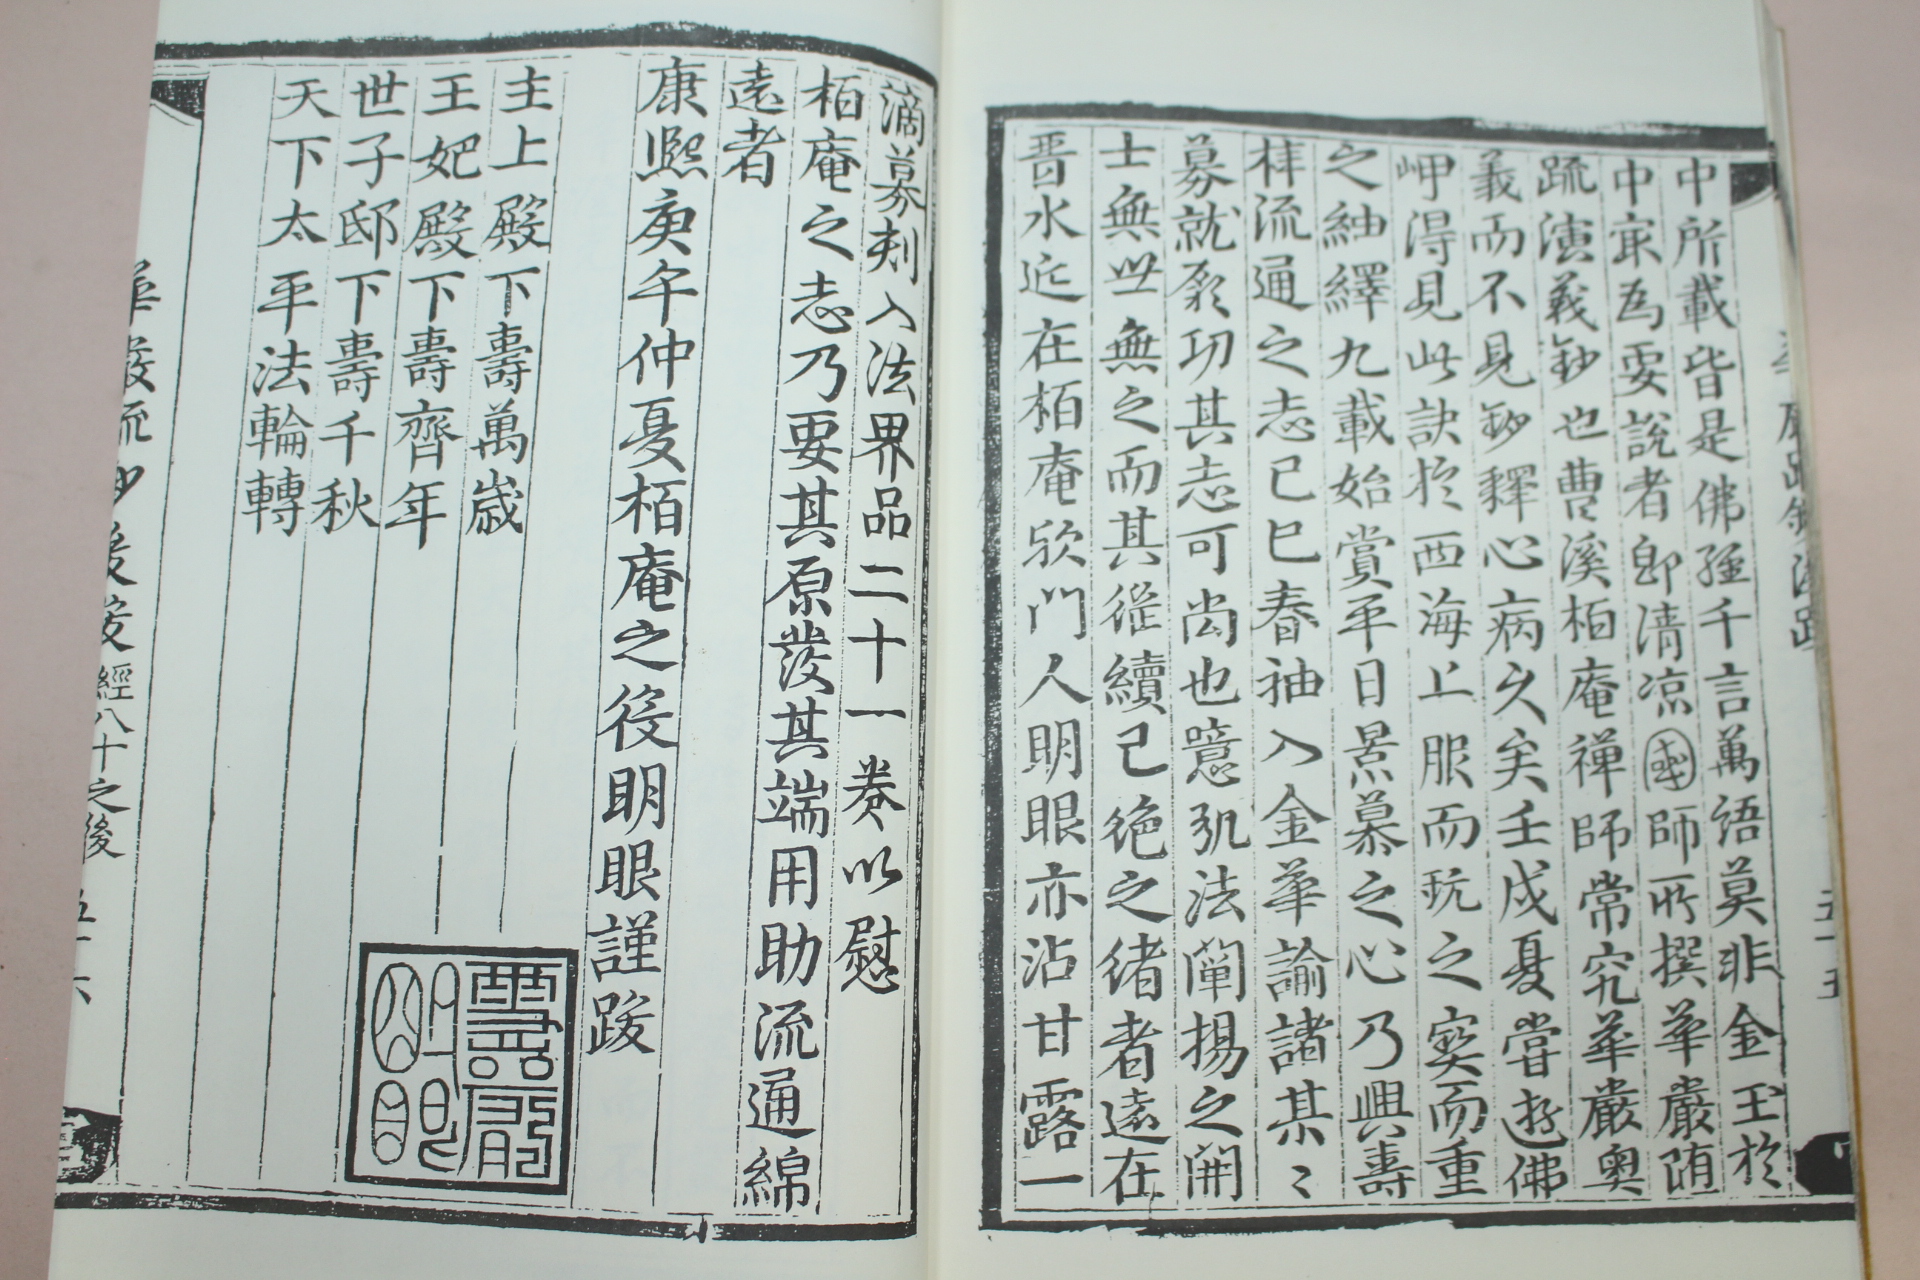 中所載皆是佛經千言萬語莫非金玉於
中㝡爲要說者卽清凉國師所撰華嚴随
疏演義鈔也曹溪栢庵禅師常究華嚴奧
義而不見鈔釋心病久矣壬戌夏嘗遊佛
岬得見此訣於西海上服而玩之寳而重
之紬繹九載始賞平日景慕之心乃興壽
梓流通之志已巳春袖入金華諭諸某〻
募就厥功其志可尚也噫弘法闡揚之開
士無世無之而其從續已絶之緒者遠在
晋水近在栢庵欤門人明眼亦沾甘露一
滴募刻入法界品二十一卷以慰
栢庵之志乃要其原發其端用助流通綿
遠者
康熙庚午仲夏栢庵之後明眼謹跋
主上殿下壽萬歲
王妃殿下壽齊年
世子邸下壽千秋
天下太平法輪轉
華嚴流鈔後跋經八十之後 五十六